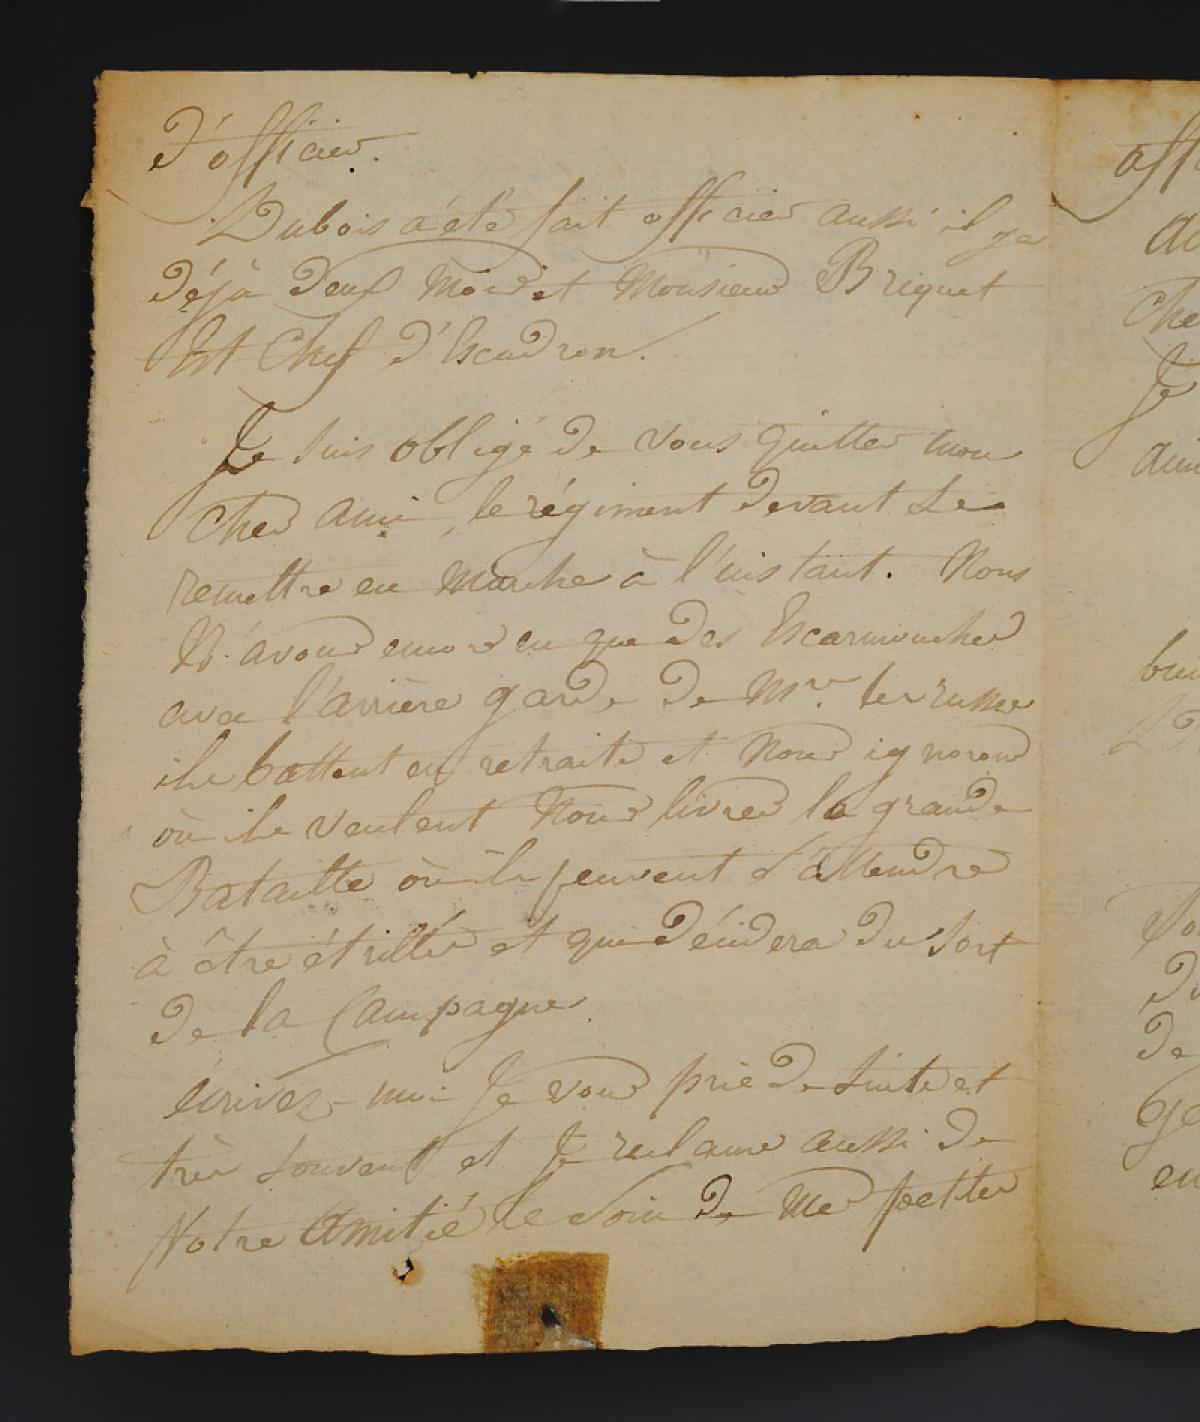 d'officier.
Dubois a été fait officier aussi il y a
déjà deux mois et Monsieur Briquet
Est Chef d'Escadron.
Je suis obligé de vous quitter mon
cher ami, le régiment devant Se
remettre en Marche à l'instant. Nous
N'avons encore eu que des Escarmouches
avec l'arrière garde de Mrs. les russes
ils battent en retraite et Nous ignorons
où ils veulent Nous livrer la grande
Bataille où ils peuvent s'attendre
à être étrillés et qui décidera du Sort
de la Campagne.
écrivez-moi Je vous prie de Suite et
très Souvent et Je réclame aussi de
Notre Amitié le Soin de Mes petites
off
che
Je
de
en